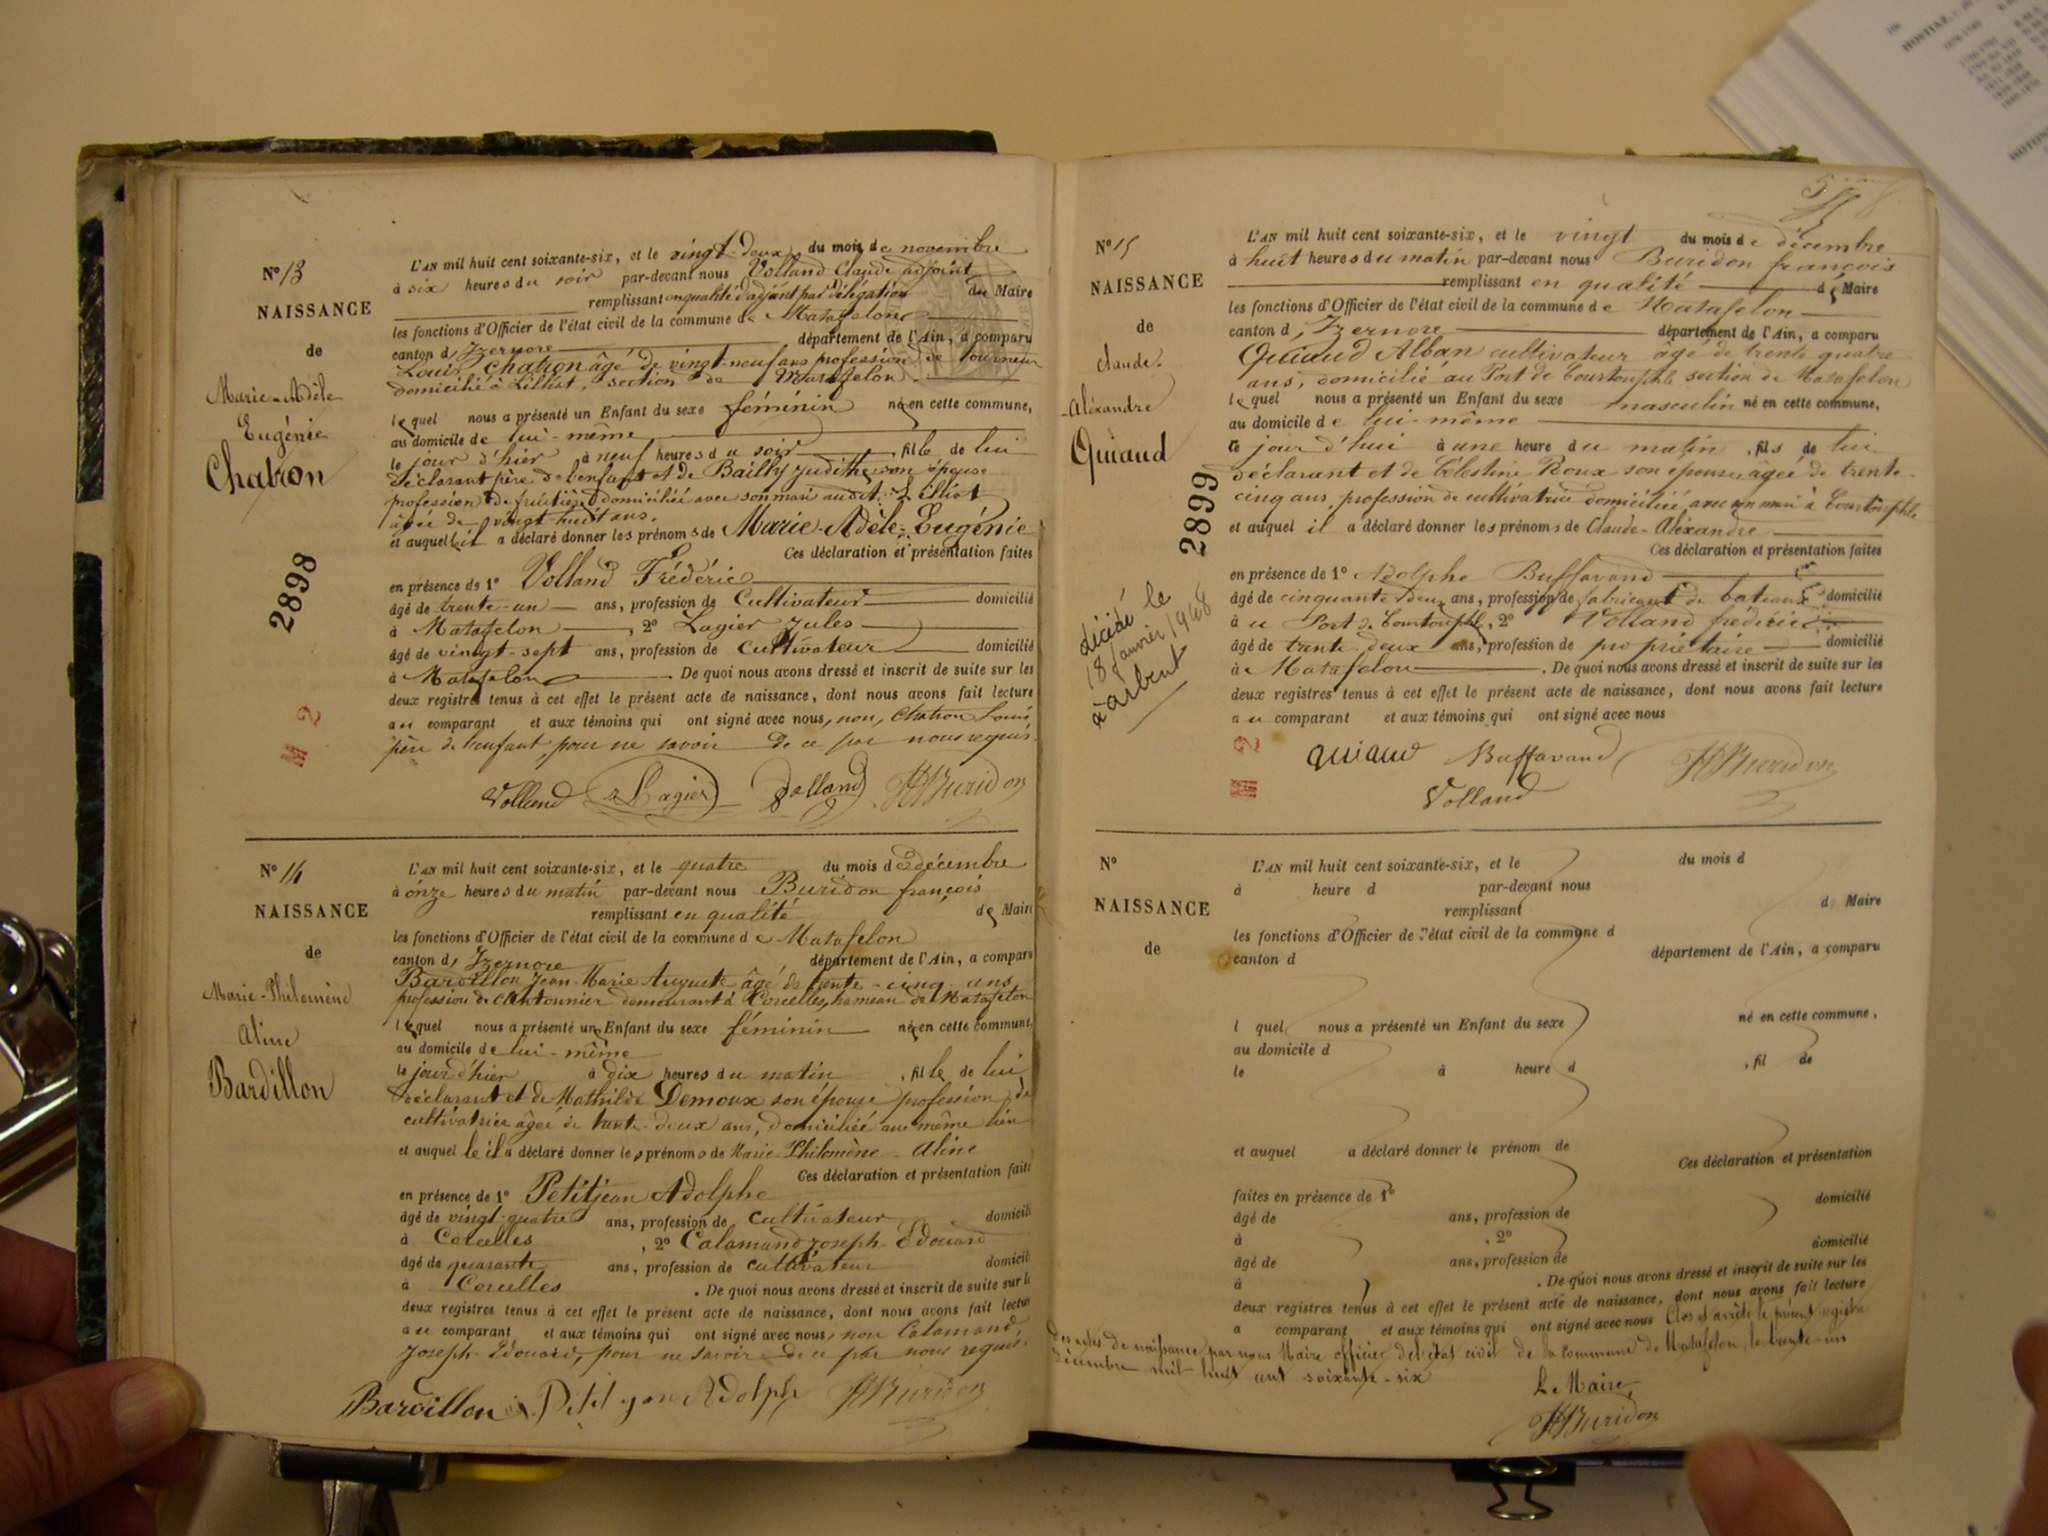 N° 13
NAISSANCE
de
Marie-Adèle
Eugénie
Chatron
2898
M 2
L'AN mil huit cent soixante-six, et le vingt-deux du mois de novembre
à six heures du soir par-devant nous Volland Claude adjoint
remplissant en qualité d'adjoint par délégation du Maire
les fonctions d'Officier de l'état civil de la commune de Matafelon
canton d'Izernore département de l'Ain, a comparu
Louis Chatron âgé de vingt-neuf ans profession de tourneur
domicilié à section de Matafelon.
lequel nous a présenté un Enfant du sexe féminin né en cette commune,
au domicile de lui-même
le jour d'hier à neuf heures du soir, fille de lui
déclarant père de l'enfant et de Bailly Judith son épouse
profession de fruitière domiciliée avec son mari audit
âgée de vingt-huit ans.
et auquel il a déclaré donner les prénoms de Marie-Adèle-Eugénie
Ces déclaration et présentation faites
en présence de 1° Volland Frédéric
âgé de trente-un ans, profession de Cultivateur domicilié
à Matafelon, 2° Lagier Jules
âgé de vingt-sept ans, profession de Cultivateur domicilié
à Matafelon. De quoi nous avons dressé et inscrit de suite sur les
deux registres tenus à cet effet le présent acte de naissance, dont nous avons fait lecture
au comparant et aux témoins qui ont signé avec nous, non, Chatron Louis
père de l'enfant pour ne savoir de ce par nous requis.
Volland Lagier Volland Buridon
N° 14
NAISSANCE
de
Marie-Philomène
Aline
Bardillon
L'AN mil huit cent soixante-six, et le quatre du mois de décembre
à onze heures du matin par-devant nous Buridon françois
remplissant en qualité de Maire
les fonctions d'Officier de l'état civil de la commune de Matafelon
canton d'Izernore département de l'Ain, a comparu
Bardillon Jean-Marie Auguste âgé de trente-cinq ans
profession de Cantonnier demeurant à Corcelles, hameau de Matafelon
lequel nous a présenté un Enfant du sexe féminin né en cette commune,
au domicile de lui-même
le jour d'hier à dix heures du matin, fille de lui
déclarant et de Mathilde Demoux son épouse profession de
cultivatrice âgée de trente-deux ans, domiciliée au même lieu
et auquel il a déclaré donner les prénoms de Marie-Philomène-Aline
Ces déclaration et présentation faites
en présence de 1° Petitjean Adolphe
âgé de vingt-quatre ans, profession de cultivateur domicilié
à Corcelles, 2° Calamand Joseph-Edouard
âgé de quarante ans, profession de cultivateur domicilié
à Corcelles. De quoi nous avons dressé et inscrit de suite sur les
deux registres tenus à cet effet le présent acte de naissance, dont nous avons fait lecture
au comparant et aux témoins qui ont signé avec nous, non Calamand
Joseph-Edouard, pour ne savoir de ce par nous requis.
Bardillon Petitjean Adolphe Buridon
N° 15
NAISSANCE
de
Claude-
Aléxandre
Quiaud
2899
décédé le
18 Janvier 1948
à arbent
M 2
L'AN mil huit cent soixante-six, et le vingt du mois de décembre
à huit heures du matin par-devant nous Buridon françois
remplissant en qualité de Maire
les fonctions d'Officier de l'état civil de la commune de Matafelon
canton d'Izernore département de l'Ain, a comparu
Quiaud Alban cultivateur agé de trente quatre
ans, domicilié au Port de section de Matafelon
lequel nous a présenté un Enfant du sexe masculin né en cette commune,
au domicile de lui-même
ce jour d'hui à une heure du matin, fils de lui
déclarant et de Célestine Roux son épouse, agée de trente-
cinq ans, profession de cultivatrice domiciliée avec son mari à
et auquel il a déclaré donner les prénoms de Claude-Aléxandre
Ces déclaration et présentation faites
en présence de 1° Adolphe Buffavand
âgé de cinquante deux ans, profession de fabricant de bateaux domicilié
à au Port de, 2° Volland frédéric
âgé de trente-deux ans, profession de propriétaire domicilié
à Matafelon. De quoi nous avons dressé et inscrit de suite sur les
deux registres tenus à cet effet le présent acte de naissance, dont nous avons fait lecture
au comparant et aux témoins qui ont signé avec nous
Quiaud Buffavand Buridon
Volland
N°
NAISSANCE
de
L'AN mil huit cent soixante-six, et le du mois d
à heure d par-devant nous
remplissant d Maire
les fonctions d'Officier de l'état civil de la commune d
canton d département de l'Ain, a comparu
l quel nous a présenté un Enfant du sexe né en cette commune,
au domicile d
le à heure d, fil de
et auquel a déclaré donner le prénom de
Ces déclaration et présentation
faites en présence de 1°
âgé de ans, profession de domicilié
à, 2°
âgé de ans, profession de domicilié
à. De quoi nous avons dressé et inscrit de suite sur les
deux registres tenus à cet effet le présent acte de naissance, dont nous avons fait lecture
a comparant et aux témoins qui ont signé avec nous Clos et arrêté le présent registre
des actes de naissance par nous Maire officier de l'état civil de la commune de Matafelon, le trente-un
décembre mil huit cent soixante-six
Le Maire,
Buridon